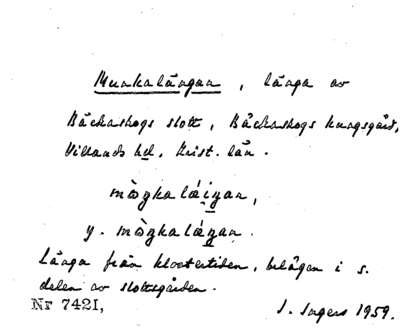 Munkalängan, länga av
Bäckaskogs slott, Bäckaskogs kungsgård,
Villands hd, Krist. län.
mòŋkalái̯ŋan,
y. mòŋkaláŋan.
Länga från klostertiden, belägen i s.
delen av slottsgården.
Nr 7421,
I. Ingers 1959.